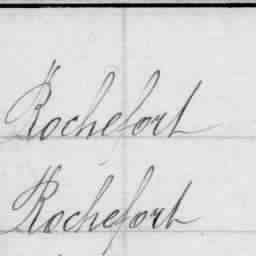 Rochefort
Rochefort